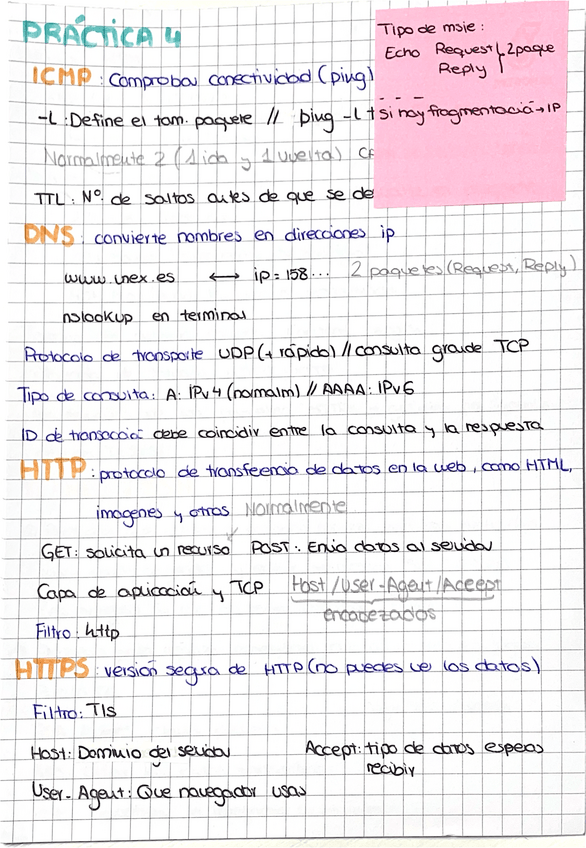 PRÁCTICA 4
Tipo de msje:
Echo Request
Reply
2 paque
si hay fragmentació → IP
ICMP: Comprobar conectividad (ping)
-L: Define el tam. paquete // ping -L t
Normalmente 2 (1 ida y 1 vuelta)
TTL: Nº. de saltos antes de que se de
DNS: convierte nombres en direcciones ip
www.unex.es ⟷ ip = 158... 2 paquetes (Request, Reply)
nslookup en terminal
Protocolo de transporte UDP (+ rápido) // consulta grande TCP
Tipo de consulta: A: IPv4 (normalm) // AAAA: IPv6
ID de transacció: debe coincidir entre la consulta y la respuesta
HTTP: protocolo de transferencia de datos en la web, como HTML,
imagenes y otros Normalmente
GET: solicita un recurso POST: Envia datos al servidor
Capa de aplicación y TCP Host / User-Agent / Accept
encabezados
Filtro: http
HTTPS: versión segura de HTTP (no puedes ver los datos)
Filtro: Tls
Host: Dominio del servidor Accept: tipo de datos esperas
recibir
User-Agent: Que navegador usas